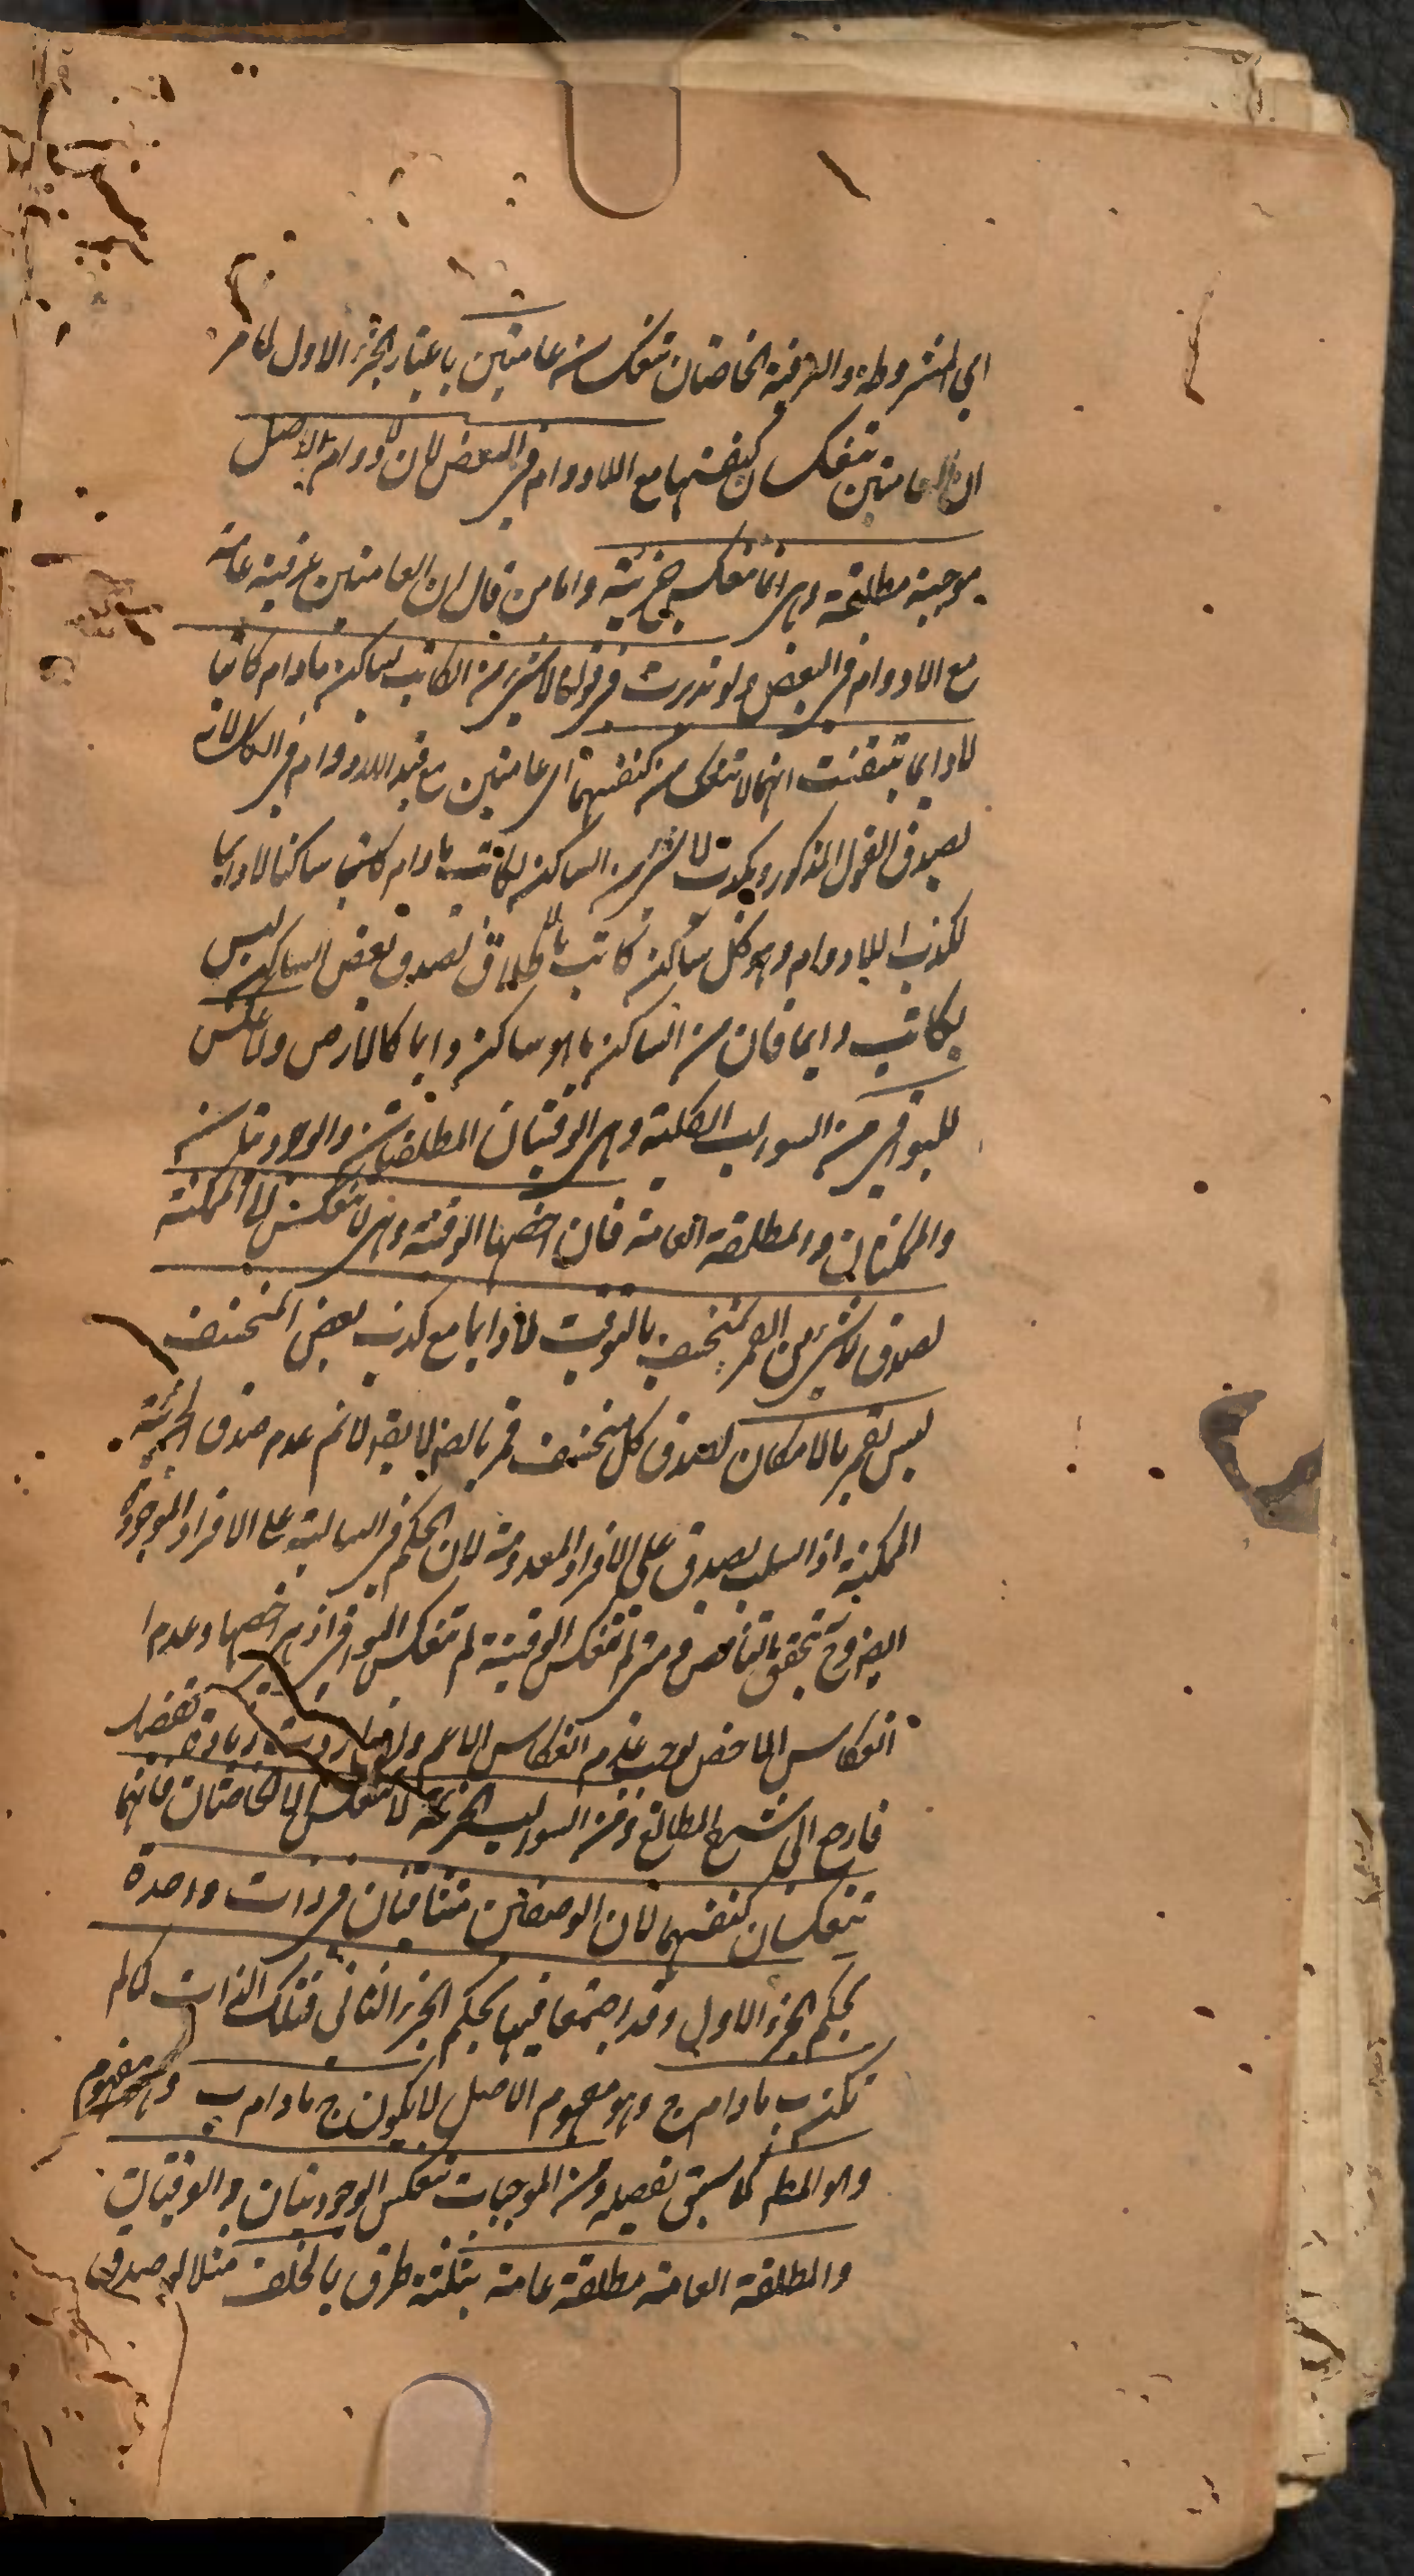 اي المشروطة والعرفية الخاصتان تنعكسان عامتين باعتبار الجزء الاول لما مر
ان العامتين تنعكسان كنفسهما مع اللادوام في البعض لان لادوام الاصل
موجبة مطلقة وهي انما تنعكس جزئية واما من قال ان العامتين عرفية عامة
مع اللادوام في البعض ولو تدبرت في قولنا لا شيء من الكاتب بساكن مادام كاتبا
لا دايما تيقنت انهما لا تنعكسان كنفسهما اي عامتين مع قيد اللادوام في الكل لانه
يصدق القول المذكور ويكذب لا شيء من الساكن بكاتب مادام ساكنا لا دايما
لكذب اللادوام وهو كل ساكن كاتب بالاطلاق لصدق بعض الساكن ليس
بكاتب دايما فان من الساكن ما هو ساكن دايما كالارض ولا عكس
للبواقي من السوالب الكلية وهي الوقتيتان المطلقتان والوجوديتان
والممكنتان والمطلقة العامة فان اخصها الوقتية وهي لا تنعكس الى الممكنة
لصدق لا شيء من القمر بمنخسف بالتوقيت لا دايما مع كذب بعض المنخسف
ليس بقمر بالامكان لصدق كل منخسف قمر بالضرورة لا يقال لا نم عدم صدق الجزئية
الممكنة اذ السلب يصدق على الافراد المعدومة لان الحكم في السالبة على الافراد الموجودة
ايضا وح تحقق التناقض ومتى لم تنعكس الوقتية لم تنعكس البواقي اذ هي اخصها وعدم ا
انعكاس الاخص يوجب عدم انعكاس الاعم ولو اردت زيادة تفصيل
فارجع الى شرح المطالع ومن السوالب الجزئية لا تنعكس الا الخاصتان فانهما
تنعكسان كنفسهما لان الوصفين متنافيان في ذات واحدة
بحكم الجزء الاول وقد اجتمعا فيها بحكم الجزء الثاني فتلك الذات كما لم
تكن ب مادام ج وهو مفهوم الاصل لا يكون ج مادام ب وهو مفهوم
وهو المطم كما سبق تفصيله ومن الموجبات تنعكس الوجوديتان والوقتيتان
والمطلقة العامة مطلقة عامة بثلثة طرق بالخلف مثلا لو صدق